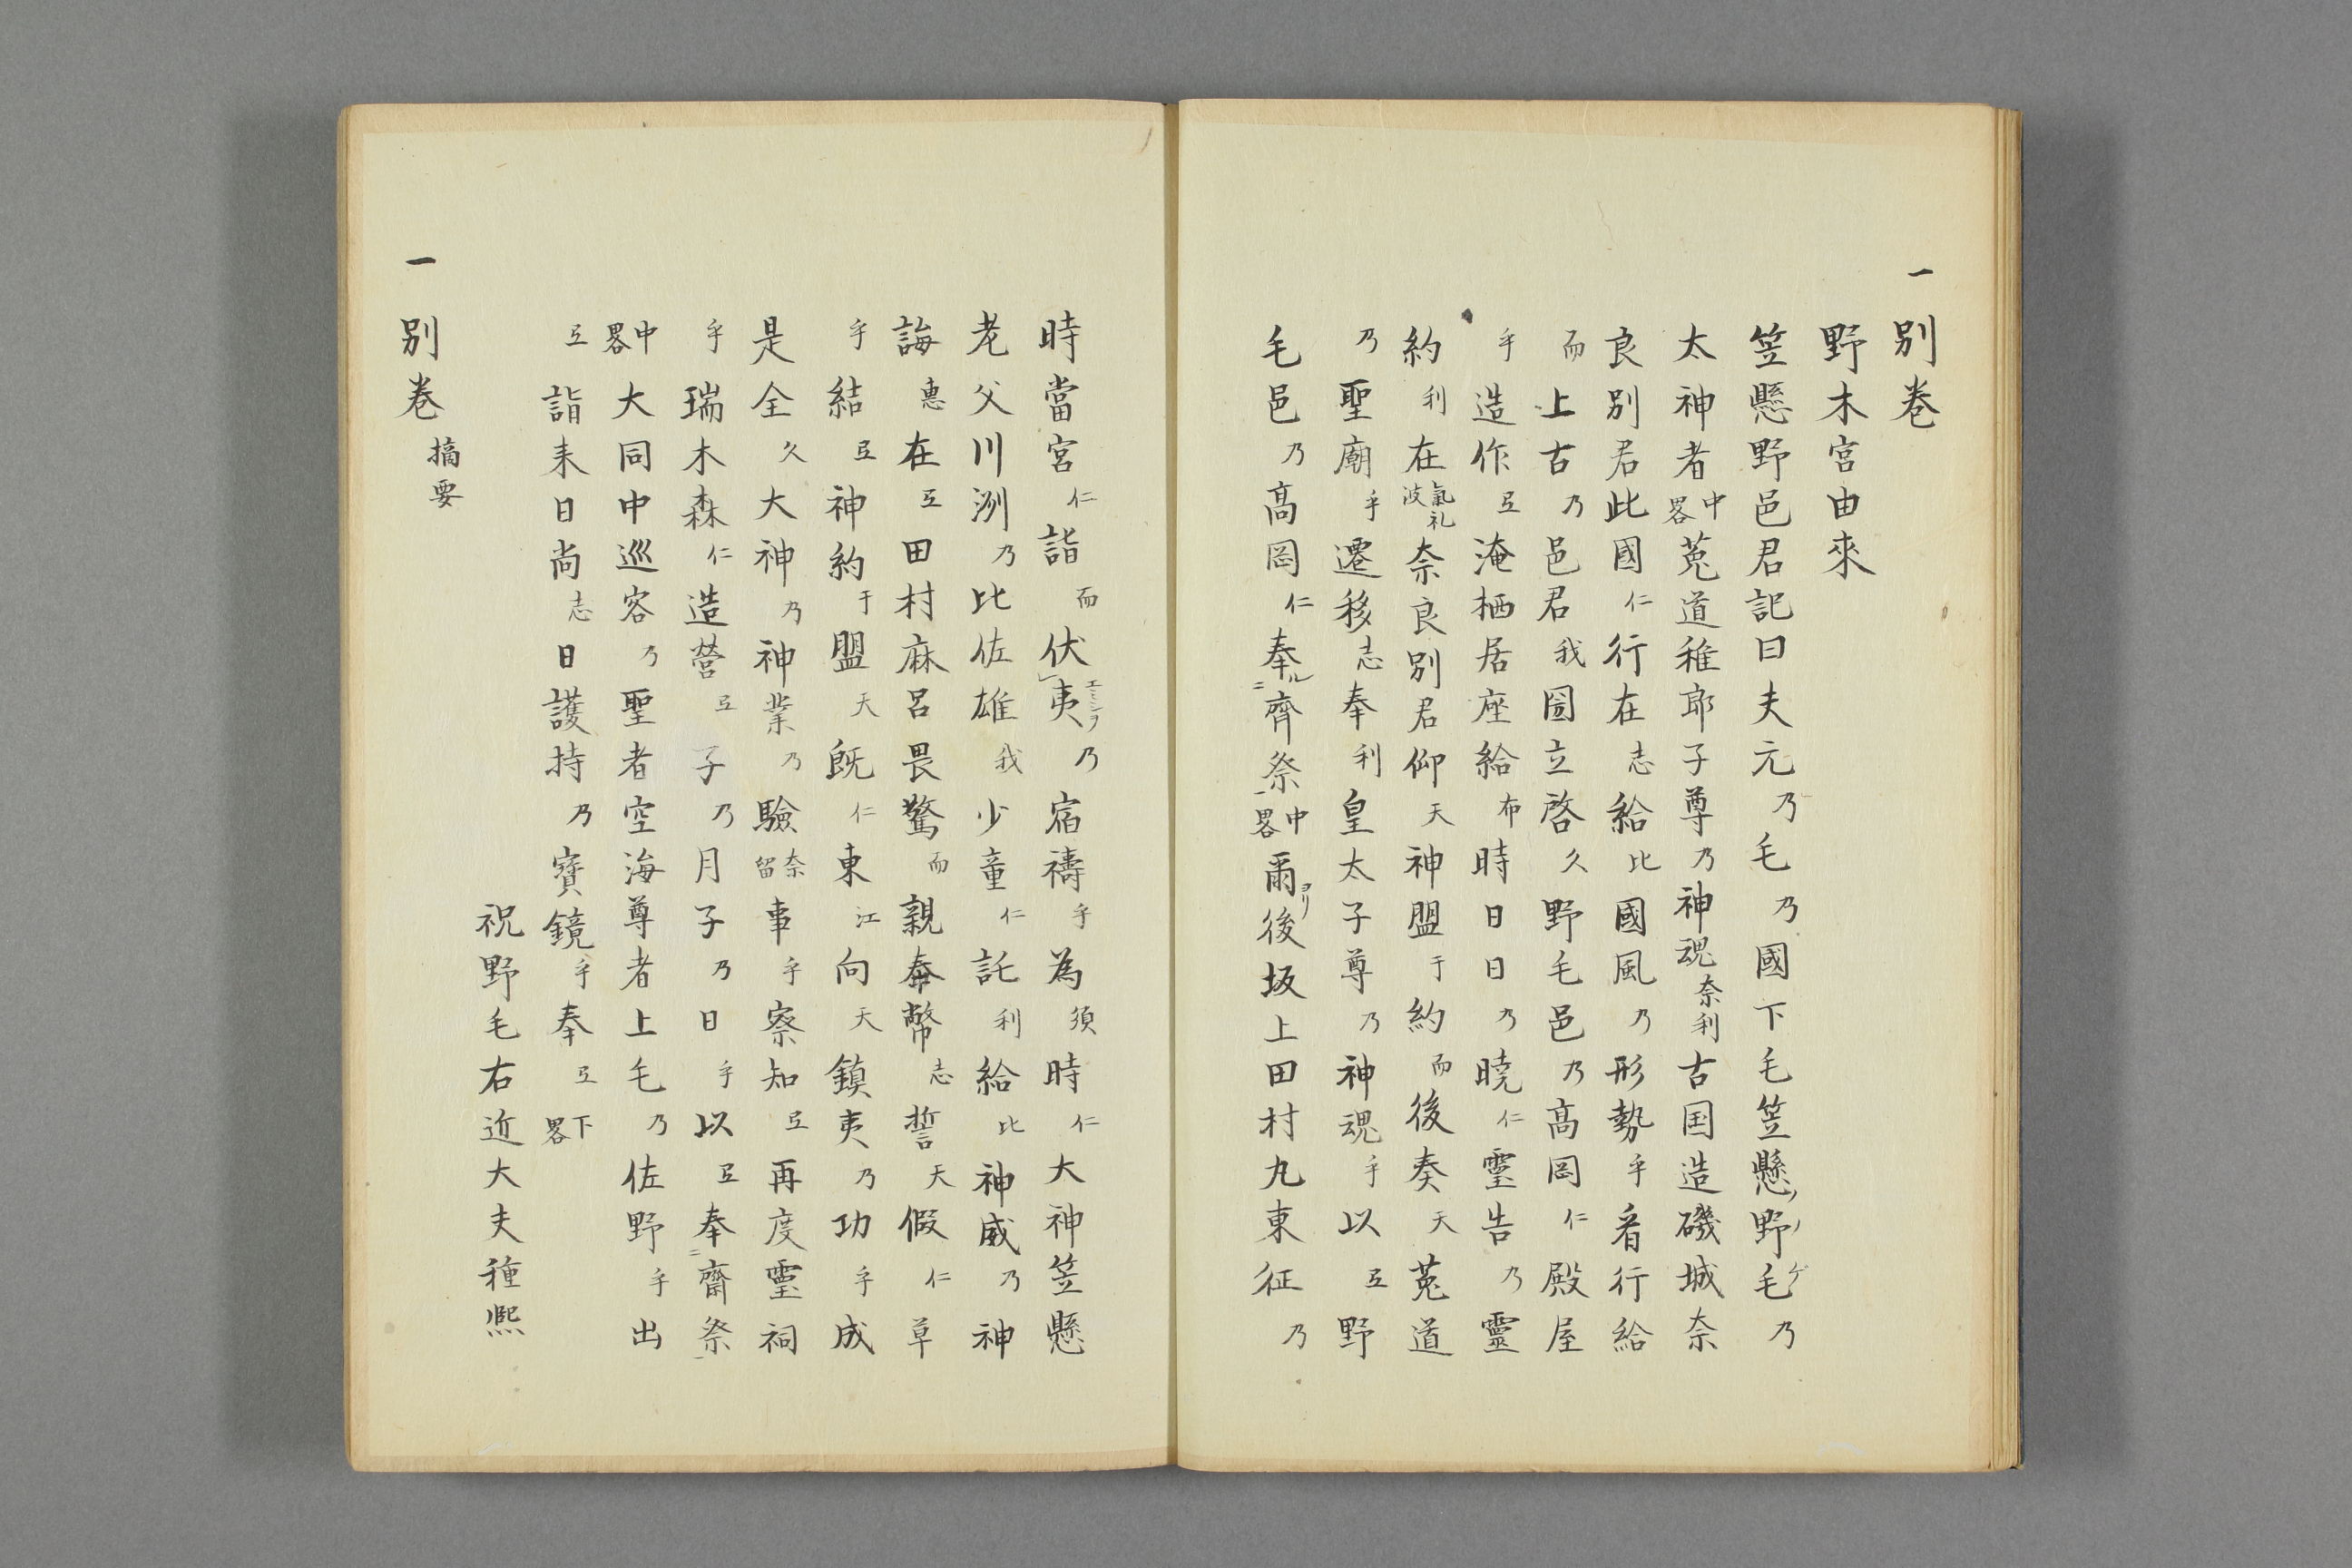 一 別巻
野木宮由來
笠懸野邑君記曰夫元乃毛乃國下毛笠懸ノ野ノ毛ケ乃
太神者中畧菟道稚郎子尊乃神魂奈利古国造磯城奈
良別君此國仁行在志給比國風乃形勢乎看行給
而上古乃邑君我圖立啓久野毛邑乃髙罡仁殿屋
乎造作㠯淹栖居座給布時日日乃暁仁靈告乃靈
約利在氣礼波奈良別君仰天神盟于約而後奏天菟道
乃聖廟乎遷移志奉利皇太子尊乃神魂乎以互野
毛邑乃髙罡仁奉ル二齊祭一中畧爾ヨリ後坂上田村丸東征乃
時當宮仁詣而伏レ夷エミシヲ乃宿禱乎為須時仁大神笠懸
老父川洲乃比佐雄我少童仁託利給比神威乃神
誨惠在互田村麻呂畏驚而親奉幣志誓天假仁草
乎結㠯神約于盟天既仁東江向天鎮夷乃功乎成
是全久大神乃神業乃驗奈留事乎察知㠯再度靈祠
乎瑞木森仁造営㠯子乃月子乃日乎以㠯奉二齋祭一
中畧大同中巡容乃聖者空海尊者上毛乃佐野乎出
互詣来日尚志日護持乃寳鏡乎奉互下畧
祝野毛右近大夫種熈
一 別巻摘要